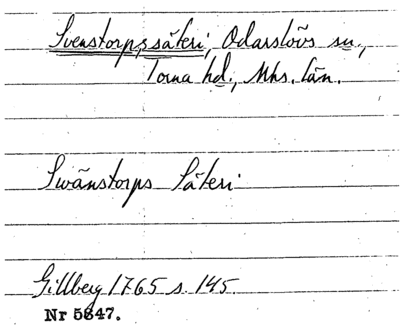 Svenstorps säteri, Odarslövs sn.,
Torna hd., Mhs. län.
Swänstorps Säteri
Gillberg 1765 s. 145.
Nr 5847.